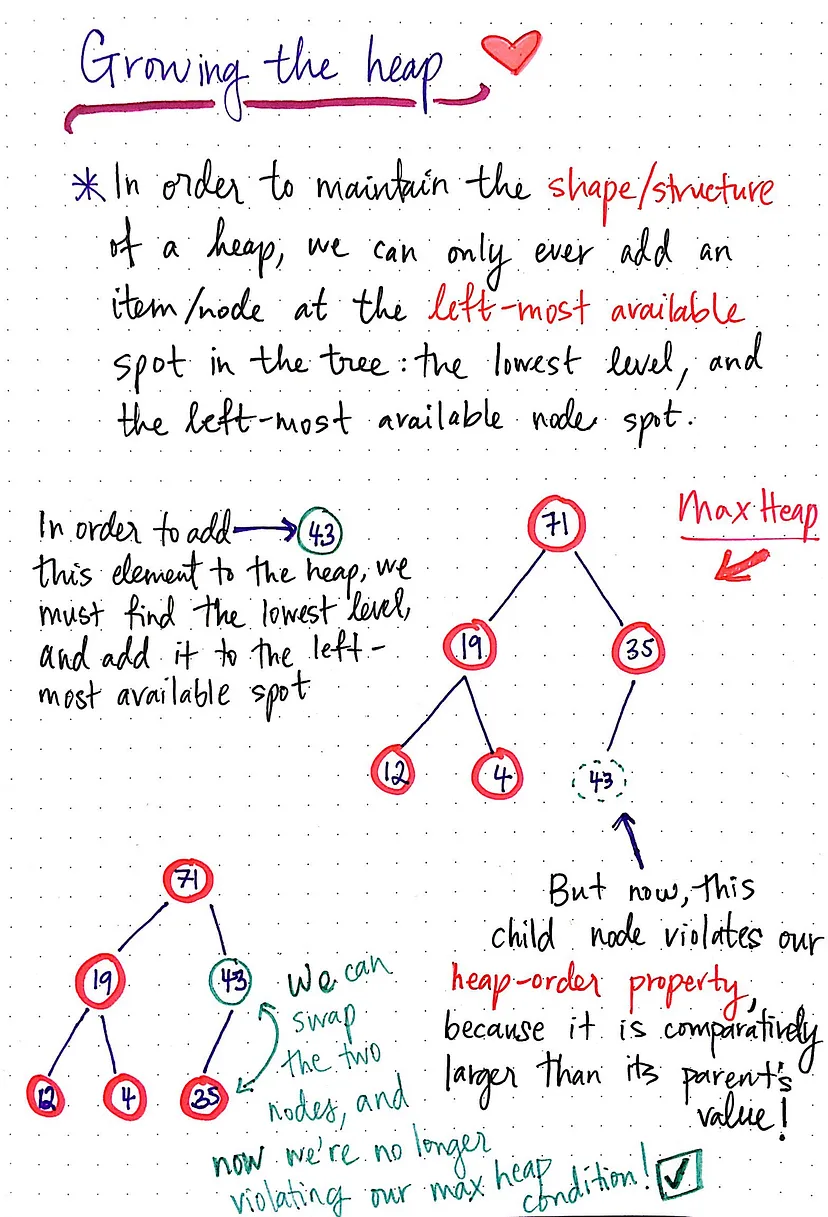 Growing the heap
* In order to maintain the shape/structure
of a heap, we can only ever add an
item/node at the left-most available
spot in the tree: the lowest level, and
the left-most available node spot.
In order to add → 43
this element to the heap, we
must find the lowest level,
and add it to the left-
most available spot
Max Heap
71
19 35
12 4 43
But now, this
child node violates our
heap-order property,
because it is comparatively
larger than its parent's
value!
71
19 43
12 4 35
We can
swap
the two
nodes, and
now we're no longer
violating our max heap
condition!